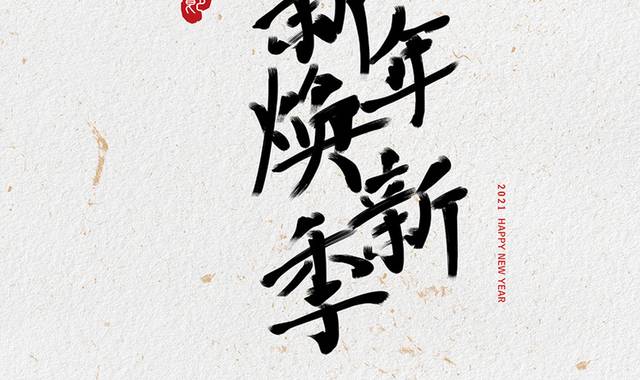 新年
焕新
季
2021 HAPPY NEW YEAR